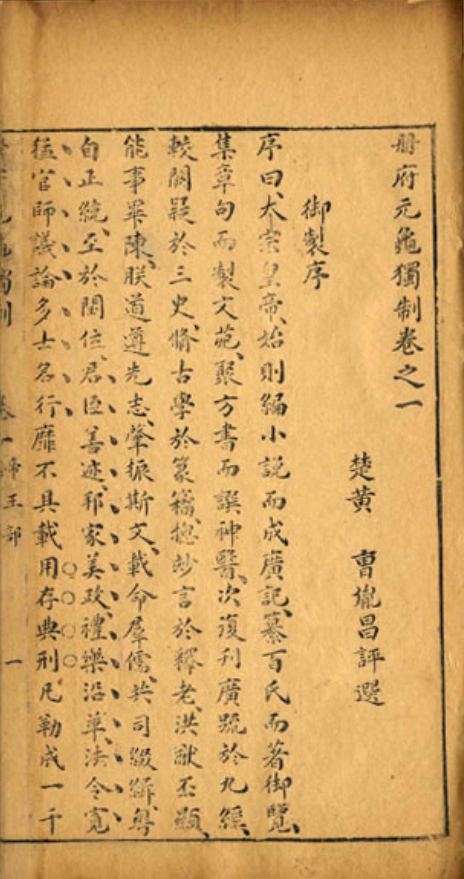 冊府元龜獨制卷之一
楚黃 曹胤昌評選
御製序
序曰太宗皇帝始則編小說而成廣記纂百氏而著御覽
集章句而製文苑聚方書而譔神醫次復刊廣疏於九經
較闕疑於三史脩古學於篆籀摠妙言於釋老洪猷丕顯
能事畢陳朕道遵先志肇振斯文載命群儒共司綴緝粵
自正統至於閏位君臣善迹邦家美政禮樂沿革法令寬
猛官師議論多士名行靡不具載用存典刑凡勒成一千
卷一 帝王部 一